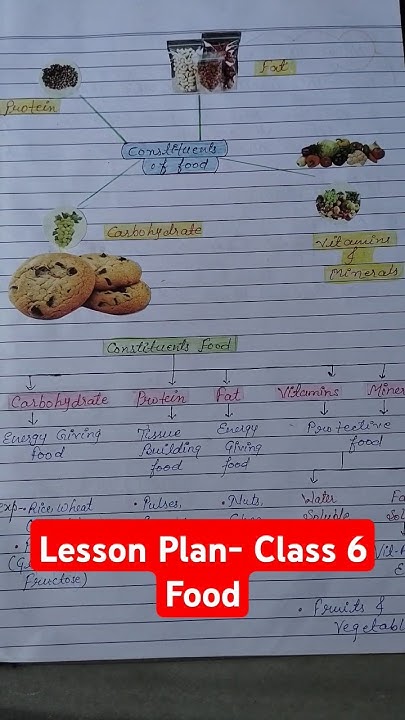 Fat
Protein
Constituents
of food
Carbohydrate
Vitamins
&
Minerals
Constituents Food
Carbohydrate Protein Fat Vitamins Miner
Energy Giving Tissue Energy Protective
food Building Giving food
food food
Exp→ Rice, Wheat • Pulses, • Nuts, Water
Soluble
Fructose)
Lesson Plan- Class 6
Food
• Fruits &
Vegetabl